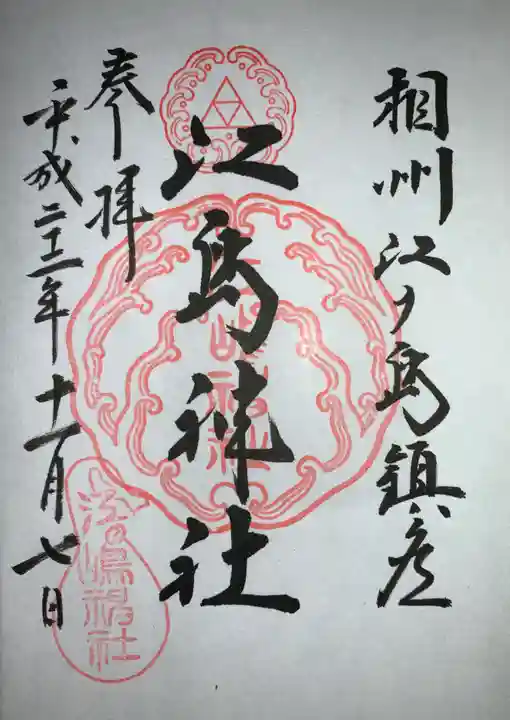 相州江ノ島鎮座
江島神社
奉拝
平成二十二年十一月七日
江嶋神社